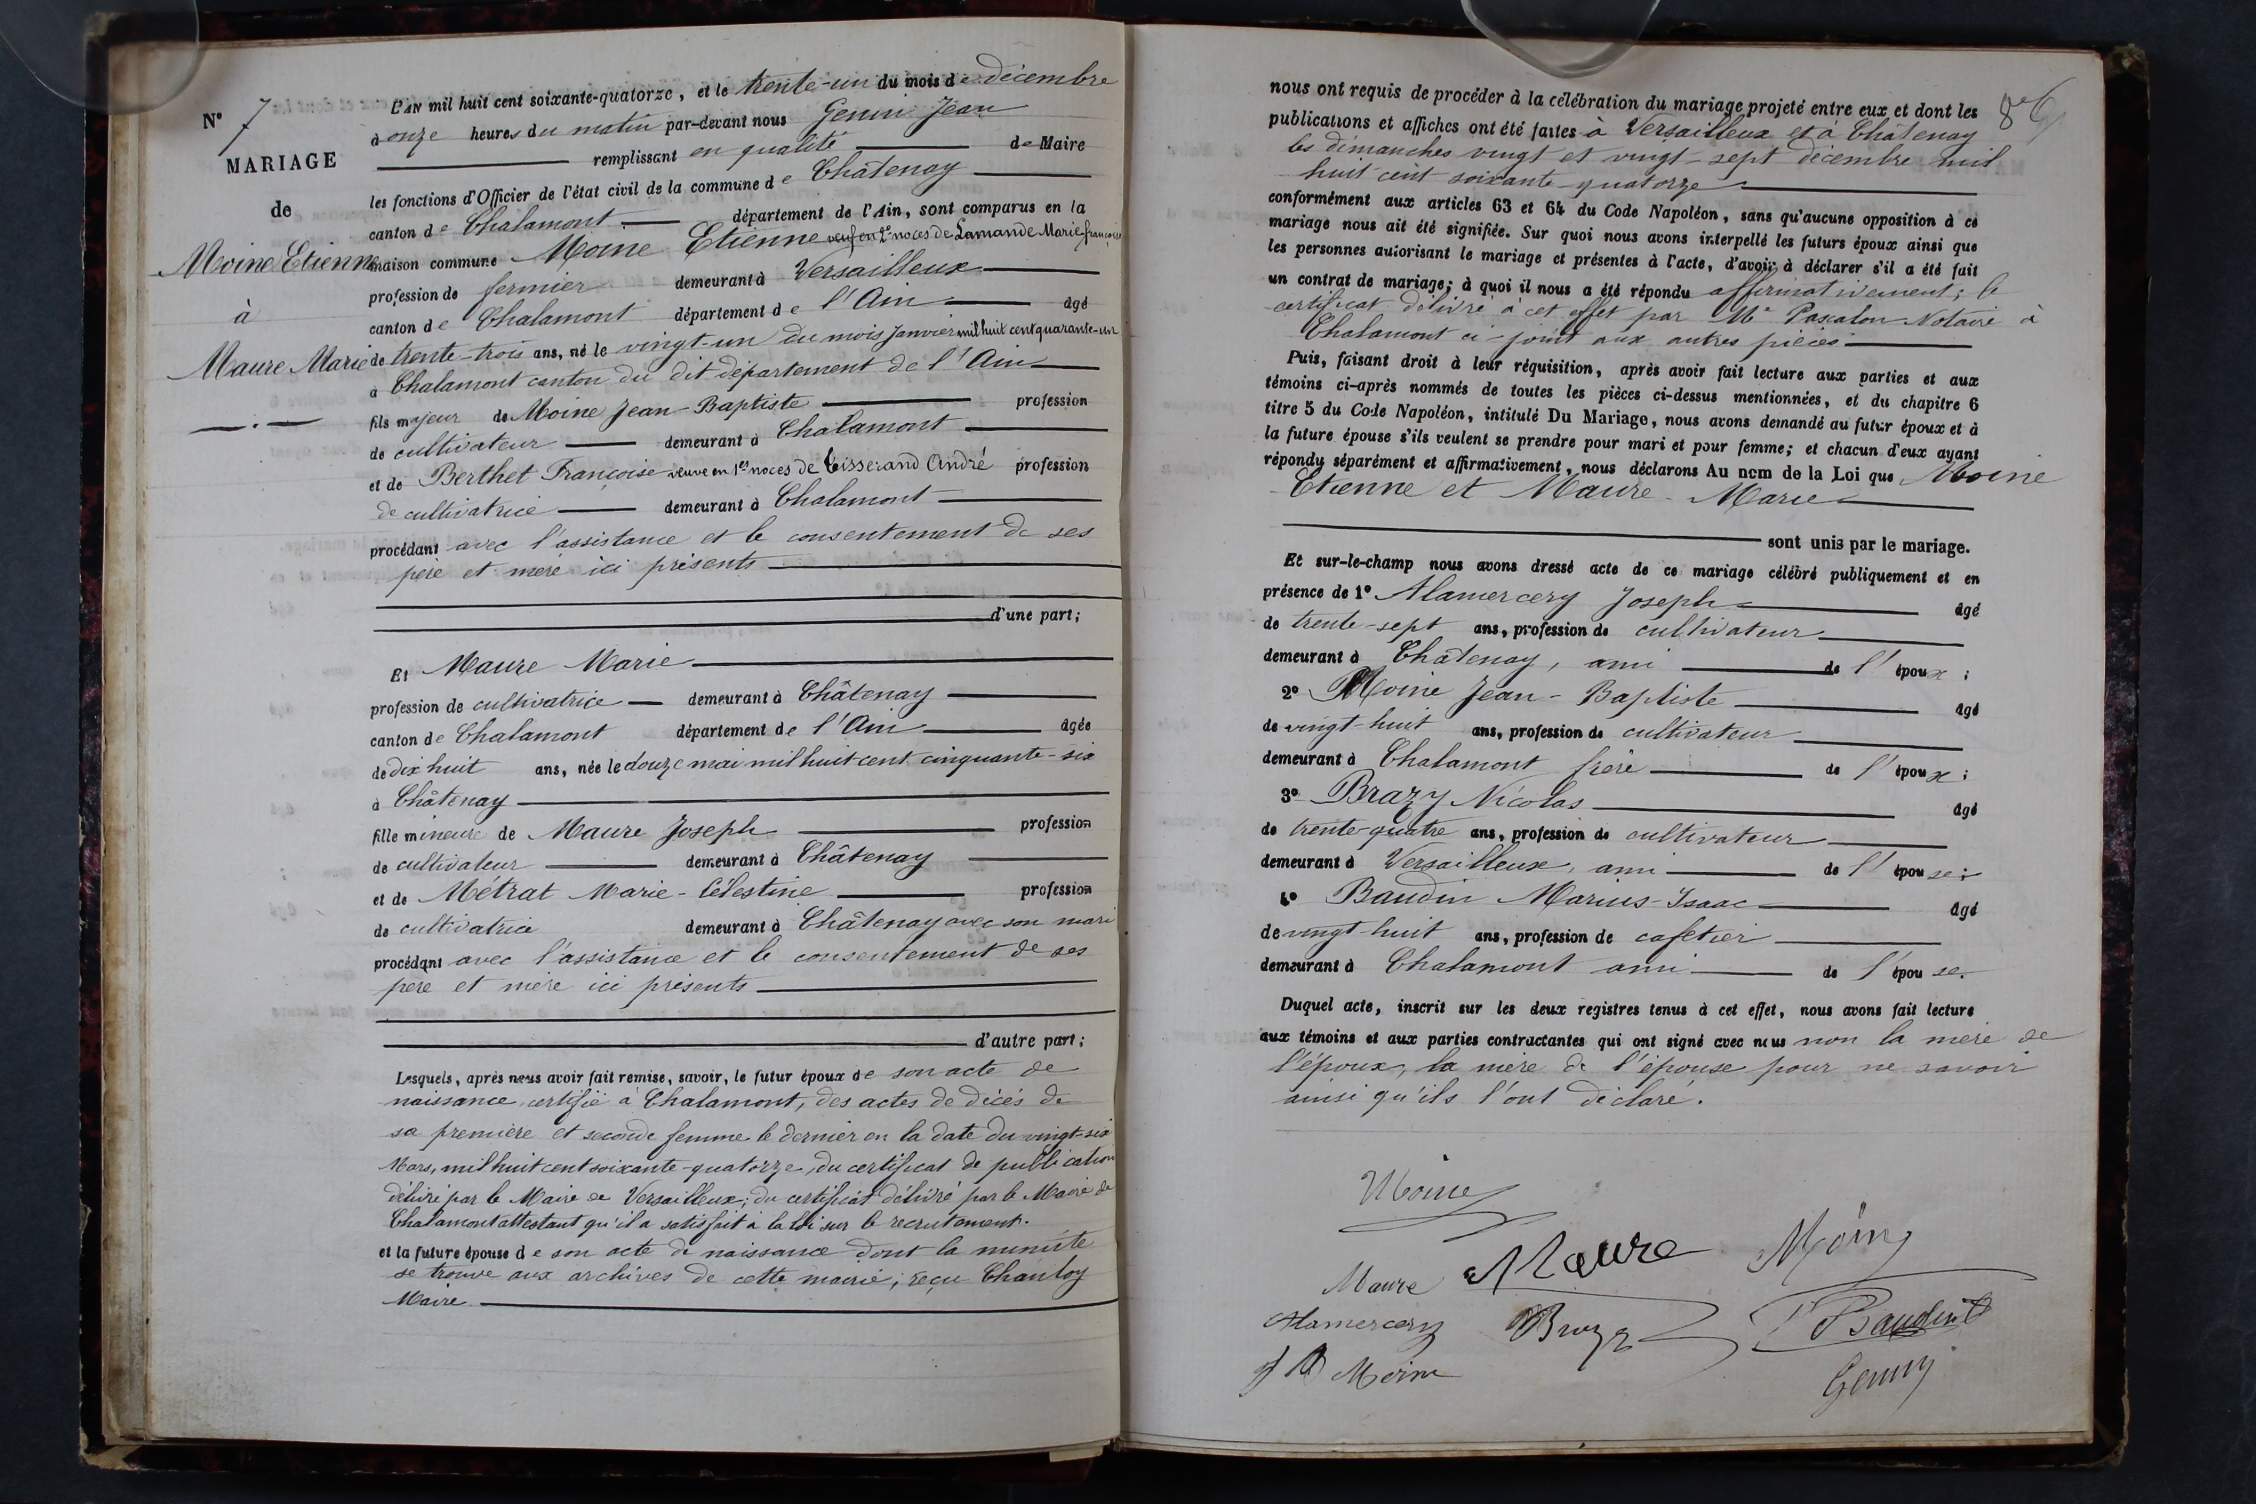 N° 7
MARIAGE
de
Moine Etienne
à
Maure Marie
L'AN mil huit cent soixante-quatorze, et le trente-un du mois de décembre
à onze heures du matin par-devant nous Genin Jean
remplissant en qualité de Maire
les fonctions d'Officier de l'état civil de la commune de Châtenay
canton de Chalamont département de l'Ain, sont comparus en la
maison commune Moine Etienne veuf en 2e noces de Lamande Marie françoise
profession de fermier demeurant à Versailleux
canton de Chalamont département de l'Ain âgé
de trente-trois ans, né le vingt-un du mois Janvier mil huit cent quarante-un
à Chalamont canton du dit département de l'Ain
fils majeur de Moine Jean-Baptiste profession
de cultivateur demeurant à Chalamont
et de Berthet Françoise veuve en 1es noces de Tisserand André profession
de cultivatrice demeurant à Chalamont
procédant avec l'assistance et le consentement de ses
père et mère ici présents
d'une part;
Et Maure Marie
profession de cultivatrice demeurant à Châtenay
canton de Chalamont département de l'Ain âgée
de dix huit ans, née le douze mai mil huit cent cinquante-six
à Châtenay
fille mineure de Maure Joseph profession
de cultivateur demeurant à Châtenay
et de Métrat Marie-Célestine profession
de cultivatrice demeurant à Châtenay avec son mari
procédant avec l'assistance et le consentement de ses
père et mère ici présents
d'autre part;
Lesquels, après nous avoir fait remise, savoir, le futur époux de son acte de
naissance certifié à Chalamont, des actes de décès de
sa première et seconde femme le dernier en la date du vingt-six
Mars, mil huit cent soixante-quatorze, du certificat de publication
délivré par le Maire de Versailleux; du certificat délivré par le Maire de
Chalamont attestant qu'il a satisfait à la loi sur le recrutement.
et la future épouse de son acte de naissance dont la minute
se trouve aux archives de cette mairie; reçu Chanloy
Maire
86
nous ont requis de procéder à la célébration du mariage projeté entre eux et dont les
publications et affiches ont été faites à Versailleux et à Châtenay
les dimanches vingt et vingt-sept décembre mil
huit cent soixante-quatorze
conformément aux articles 63 et 64 du Code Napoléon, sans qu'aucune opposition à ce
mariage nous ait été signifiée. Sur quoi nous avons interpellé les futurs époux ainsi que
les personnes autorisant le mariage et présentes à l'acte, d'avoir à déclarer s'il a été fait
un contrat de mariage; à quoi il nous a été répondu affirmativement; le
certificat délivré à cet effet par Me Pascalon Notaire à
Chalamont ci-joint aux autres pièces
Puis, faisant droit à leur réquisition, après avoir fait lecture aux parties et aux
témoins ci-après nommés de toutes les pièces ci-dessus mentionnées, et du chapitre 6
titre 5 du Code Napoléon, intitulé Du Mariage, nous avons demandé au futur époux et à
la future épouse s'ils veulent se prendre pour mari et pour femme; et chacun d'eux ayant
répondu séparément et affirmativement, nous déclarons Au nom de la Loi que Moine
Etienne et Maure Marie
sont unis par le mariage.
Et sur-le-champ nous avons dressé acte de ce mariage célébré publiquement et en
présence de 1° Alamercery Joseph âgé
de trente-sept ans, profession de cultivateur
demeurant à Châtenay, ami de l'époux;
2° Moine Jean-Baptiste âgé
de vingt-huit ans, profession de cultivateur
demeurant à Chalamont frère de l'époux;
3° Brazy Nicolas âgé
de trente-quatre ans, profession de cultivateur
demeurant à Versailleux, ami de l'épouse;
4° Baudin Marius-Isaac âgé
de vingt-huit ans, profession de cafetier
demeurant à Chalamont ami de l'épouse.
Duquel acte, inscrit sur les deux registres tenus à cet effet, nous avons fait lecture
aux témoins et aux parties contractantes qui ont signé avec nous non la mère de
l'époux, la mère de l'épouse pour ne savoir
ainsi qu'ils l'ont déclaré.
Moine
Maure Maure Moine
Alamercery Brazy Baudin
J B Moine Genin